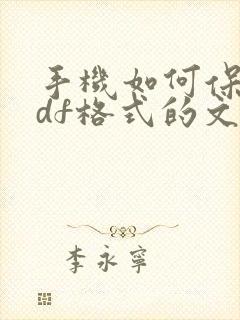 手機如何保
df格式的文
李永寧